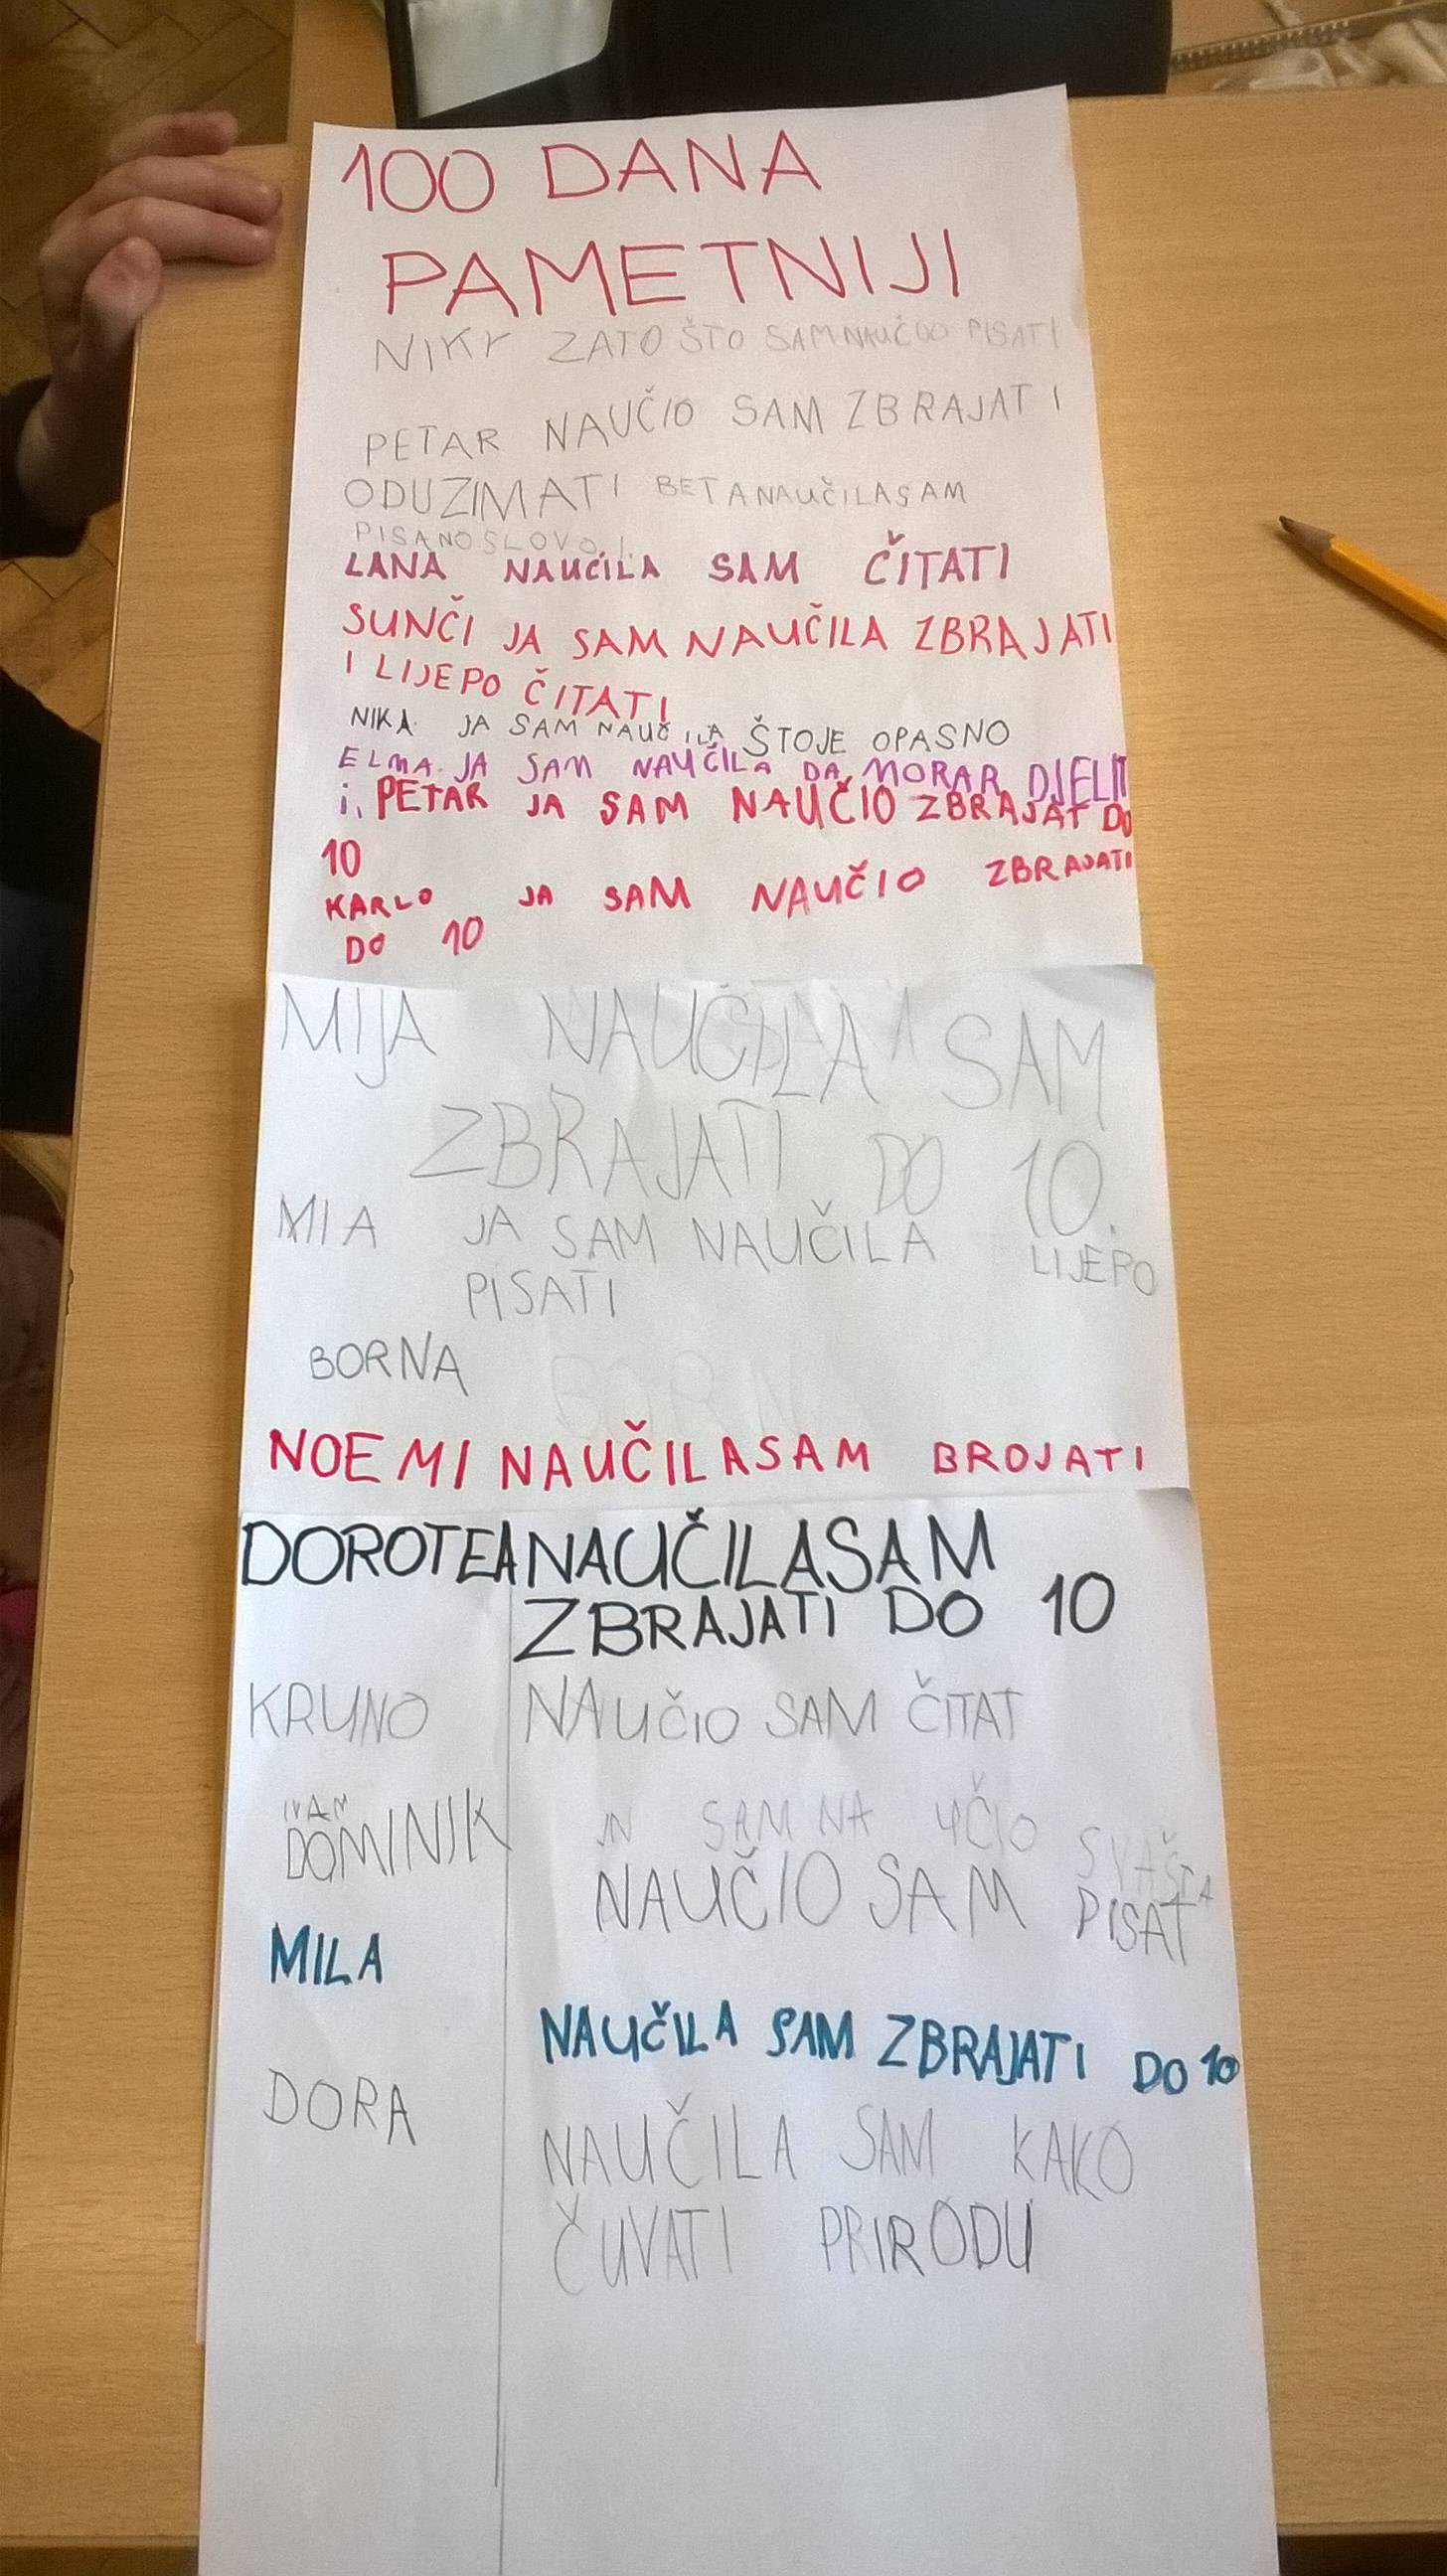 100 DANA
PAMETNIJI
NIKY ZATO ŠTO SAM NAUČIO PISATI
PETAR NAUČIO SAM ZBRAJATI
ODUZIMATI BETA NAUČILA SAM
PISANO SLOVO I.
LANA NAUČILA SAM ČITATI
SUNČI JA SAM NAUČILA ZBRAJATI
I LIJEPO ČITATI
NIKA JA SAM NAUČILA ŠTOJE OPASNO
ELMA JA SAM NAUČILA DA MORAR DJELIT
i, PETAR JA SAM NAUČIO ZBRAJAT DO
10
KARLO JA SAM NAUČIO ZBRAJATI
DO 10
MIJA NAUČILA SAM
ZBRAJATI DO 10.
MIA JA SAM NAUČILA LIJEPO
PISATI
BORNA
NOEMI NAUČILASAM BROJATI
DOROTEA NAUČILASAM
ZBRAJATI DO 10
KRUNO NAUČIO SAM ČITAT
IVAN SAM NA UČIO SVAŠTA
DOMINIK NAUČIO SAM PISAT
MILA NAUČILA SAM ZBRAJATI DO 10
DORA NAUČILA SAM KAKO
ČUVATI PRIRODU